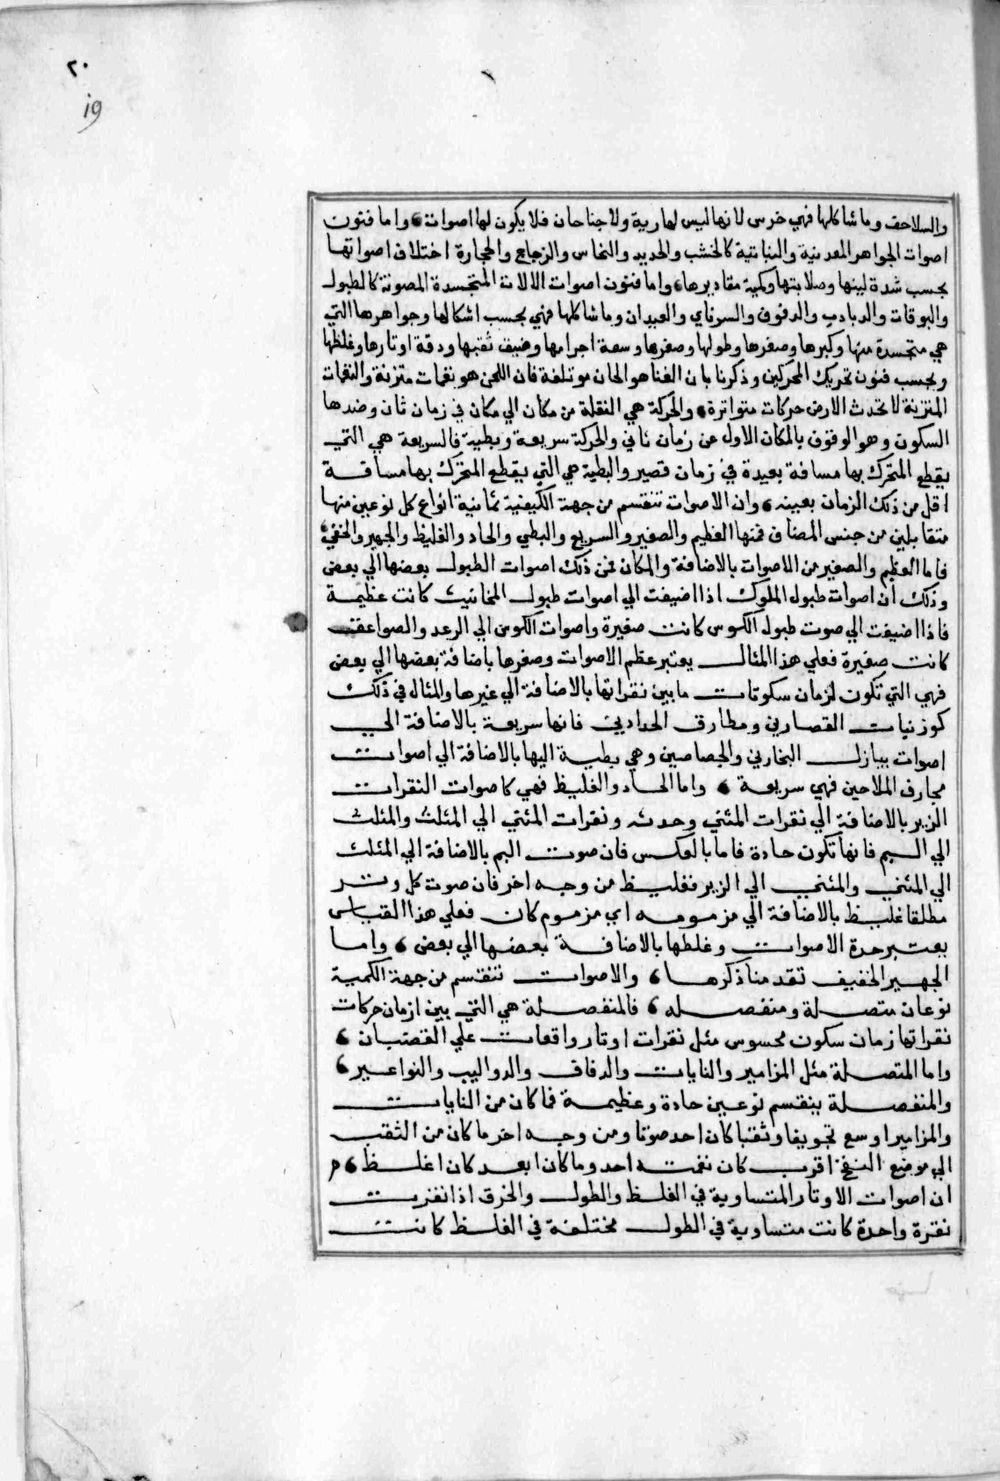 ٢٠
19
والسلاحف وما شاكلها فهي خرس لانها ليس لها رية ولا جناحان فلا يكون لها اصوات، واما فنون
اصوات الجواهر المعدنية والنباتية كالخشب والحديد والنحاس والزجاج والحجارة اختلاف اصواتها
بحسب شدة لينها وصلابتها وكمية مقاديرها، واما فنون اصوات الالات المتجسدة المصوتة كالطبول
والبوقات والدبادب والدفوف والسرناي والعيدان وما شاكلها فهي بحسب اشكالها وجواهرها التي
هي متجسدة منها وكبرها وصغرها وطولها وصغرها وسعة اجرامها وضيف ثقبها ودقة اوتارها وغلظها
وبحسب فنون تحريك المحركين وذكرنا بان الغنا هو الحان موتلفة فان اللحن هو نغمات متزنة والنغمات
المتزنة لا تحدث الا من حركات متواترة، والحركة هي النقلة من مكان الي مكان في زمان ثان وضدها
السكون وهو الوقوف بالمكان الاول عن زمان ثاني والحركة سريعة وبطية فالسريعة هي التي
يقطع المتحرك بها مسافة بعيدة في زمان قصير والبطية هي التي يقطع المتحرك بها مسافة
اقل من ذلك الزمان بعينه، وان الاصوات تنقسم من جهة الكيفية ثمانية انواع كل نوعين منها
متقابلين من جنس المضاف فمنها العظيم والصغير والسريع والبطي والحاد والغليظ والجهير والخفي،
فاما العظيم والصغير من الاصوات بالاضافة والمكان فمن ذلك اصوات الطبول بعضها الي بعض
وذلك ان اصوات طبول الملوك اذا اضيفت الي اصوات طبول المخانيث كانت عظيمة
فاذا اضيفت الي صوت طبول الكوس كانت صغيرة واصوات الكوس الي الرعد والصواعق
كانت صغيرة فعلي هذا المثال يعتبر عظم الاصوات وصغرها باضافة بعضها الي بعض
فهي التي تكون لزمان سكوتات ما بين نقراتها بالاضافة الي غيرها والمثال في ذلك
كوزنيات القصارين ومطارق الحدادين فانها سريعة بالاضافة الي
اصوات بيازل النجارين والجصاصين وهي بطية اليها بالاضافة الي اصوات
مجارف الملاحين فهي سريعة، واما الحاد والغليظ فهي كاصوات النقرات
الزير بالاضافة الي نقرات المثني وحدته ونقرات المثني الي المثلث والمثلث
الي البم فانها تكون حادة فاما بالعكس فان صوت البم بالاضافة الي المثلث
الي المثني والمثني الي الزير فغليظ من وجه اخر فان صوت كل وتر
مطلقا غليظ بالاضافة الي مزمومه اي مزموم كان فعلي هذا القياس
يعتبر حدة الاصوات وغلظها بالاضافة بعضها الي بعض، واما
الجهير الخفيف تقدمنا ذكرها، والاصوات تنقسم من جهة الكمية
نوعان متصلة ومنفصله، فالمنفصلة هي التي بين ازمان حركات
نقراتها زمان سكون محسوس مثل نقرات اوتار واقعات علي القضبان،
واما المتصلة مثل المزامير والنايات والدفاف والدواليب والنواعير،
والمنفصلة ينقسم نوعين حادة وعظيمة فما كان من النايات
والمزامير اوسع تجويفا وثقبا كان احد صوتا ومن وجه اخر ما كان من الثقب
الي موضع النفخ اقرب كان نغمته احد وما كان ابعد كان اغلظ، م
ان اصوات الاوتار المتساوية في الغلظ والطول والخرق اذا نقرت
نقرة واحدة كانت متساوية في الطول مختلفة في الغلظ كانت